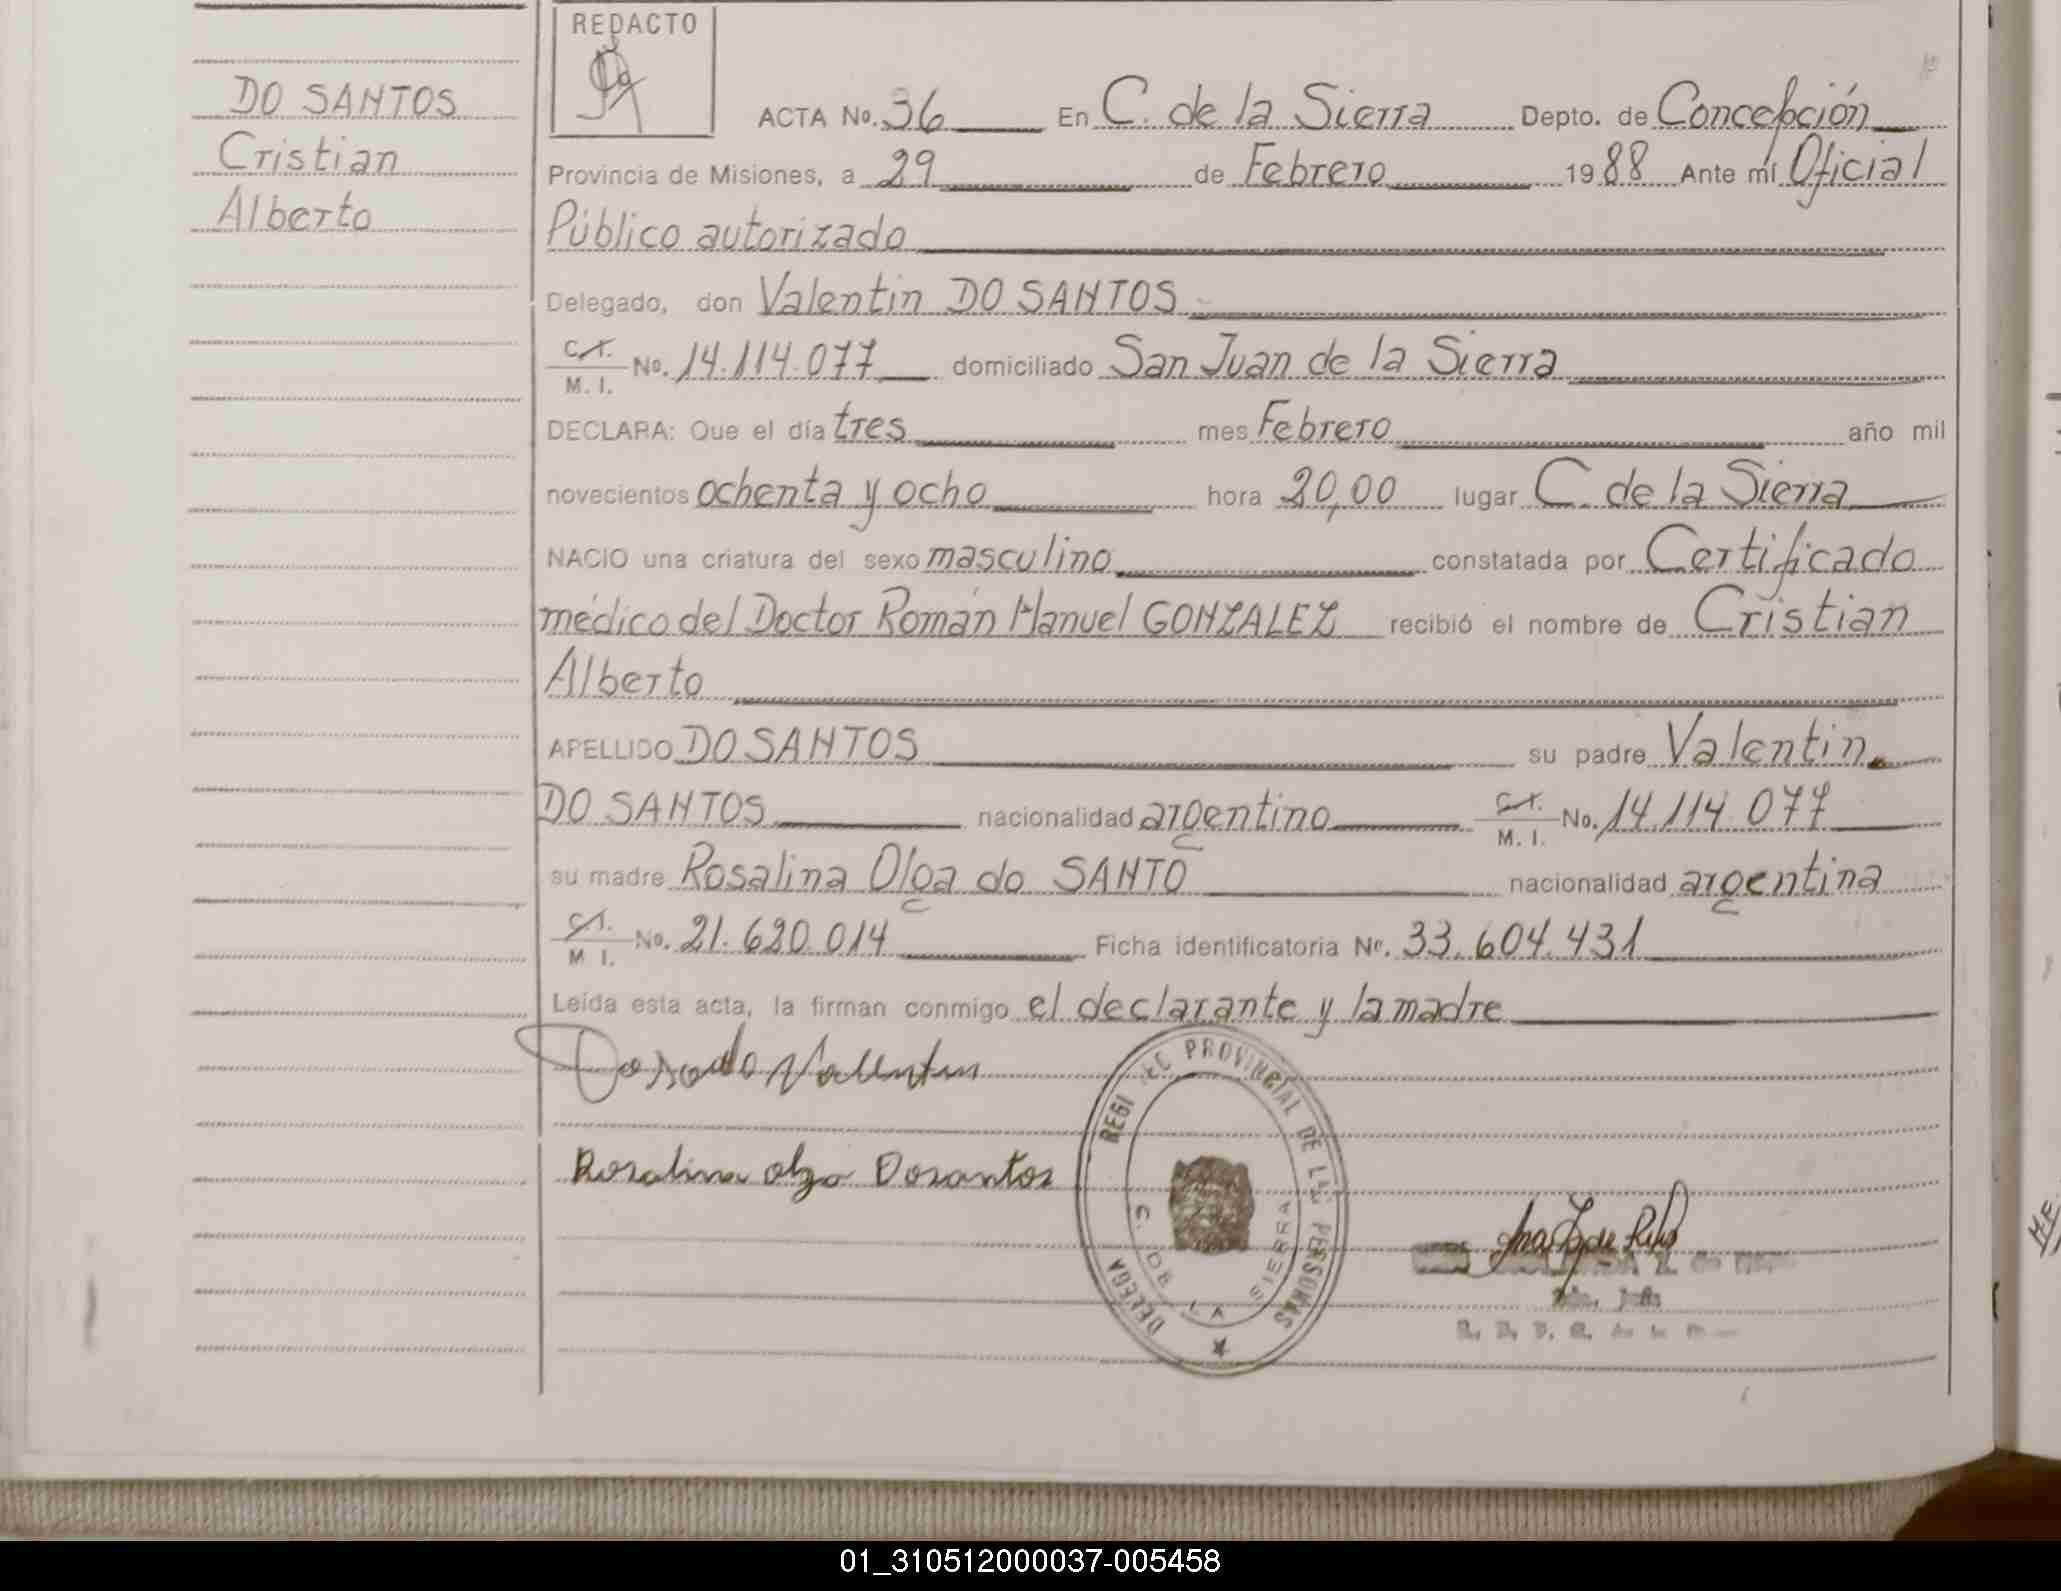 REDACTO
DO SANTOS
Cristian
Alberto
ACTA No. 36 En C. de la Sierra Depto. de Concepción
Provincia de Misiones, a 29 de Febrero 1988 Ante mí Oficial
Público autorizado
Delegado, don Valentin DO SANTOS
C.I. M. I. No. 14.114.077 domiciliado San Juan de la Sierra
DECLARA: Que el día tres mes Febrero año mil
novecientos ochenta y ocho hora 20,00 lugar C. de la Sierra
NACIO una criatura del sexo masculino constatada por Certificado
médico del Doctor Román Manuel GONZALEZ recibió el nombre de Cristian
Alberto
APELLIDO DO SANTOS su padre Valentin
DO SANTOS nacionalidad argentino C.I. M. I. No. 14.114.077
su madre Rosalina Olga do SANTO nacionalidad argentina
C.I. M. I. No. 21.620.014 Ficha identificatoria Nº. 33.604.431
Leída esta acta, la firman conmigo el declarante y la madre
Valentin
Rosalina olga Dosantos
REGI PROVINCIAL DE LAS PERSONAS
DELEGA
C. DE LA SIERRA
01_310512000037-005458